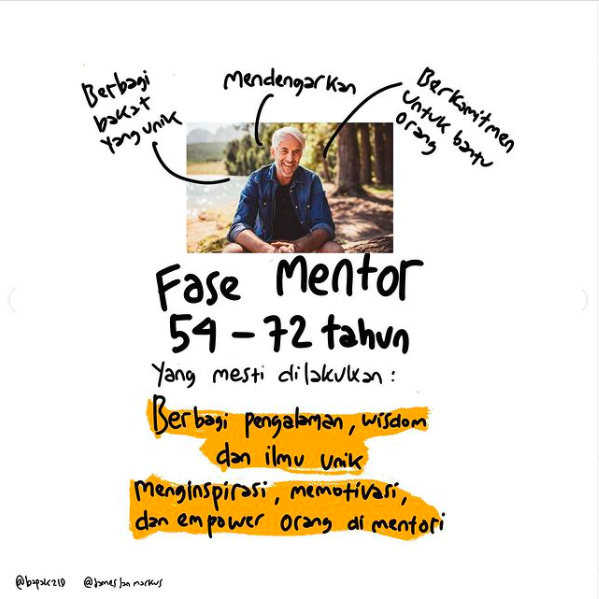 Berbagi
bakat
yang unik
Mendengarkan
Berkomitmen
untuk bantu
orang
Fase Mentor
54 – 72 tahun
Yang mesti dilakukan :
Berbagi pengalaman, wisdom
dan ilmu unik
Menginspirasi, memotivasi,
dan empower orang di mentori
@bapak2ID @jamesianmarkus